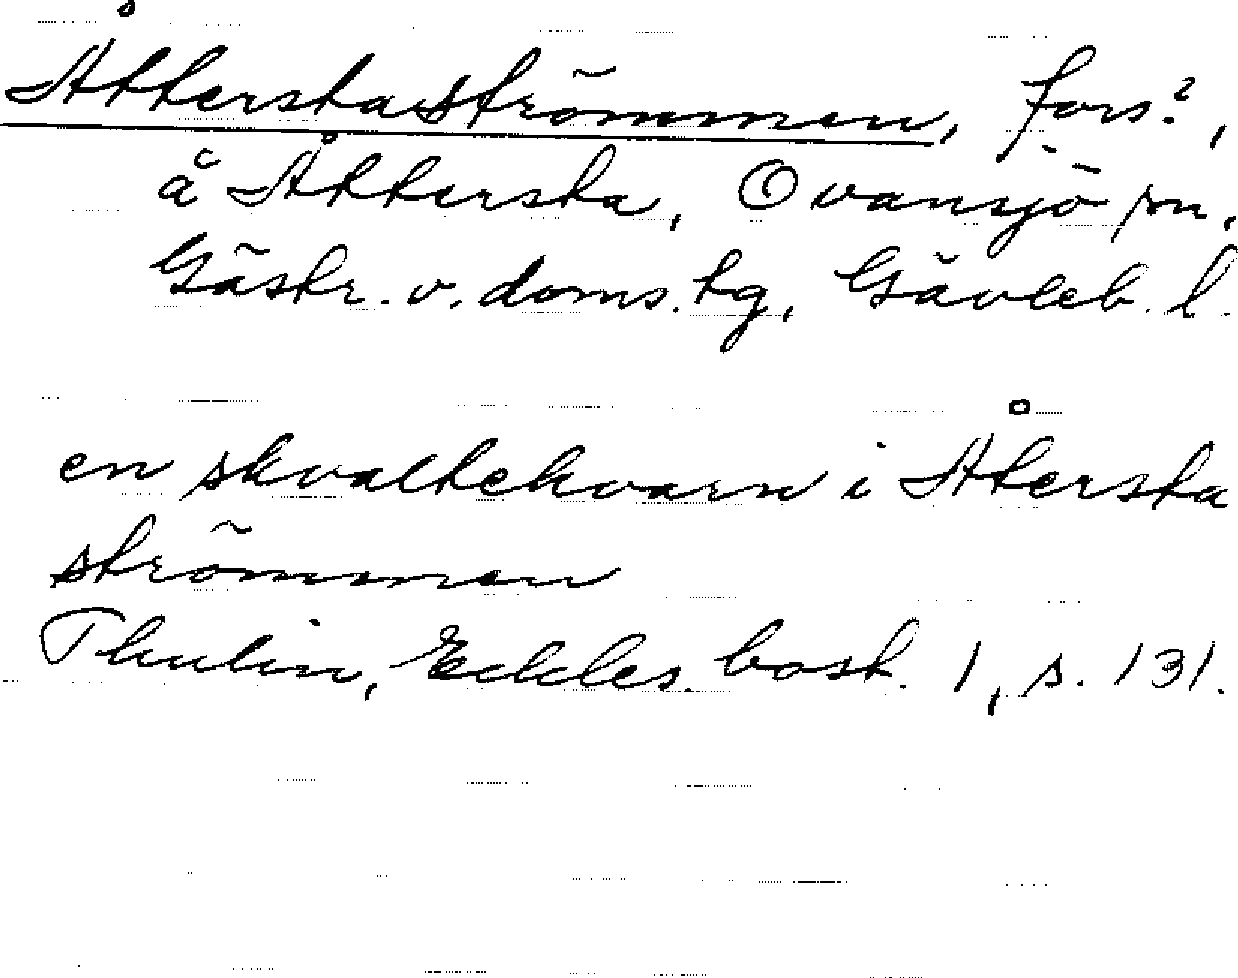 Åtterstaströmmen, fors?,
å Åttersta, Ovansjö sn,
Gästr. v. doms. tg, Gävleb. l.
en skvaltekvarn i Återsta
strömmen
Thulin, Eckles. bost. 1, s. 131.